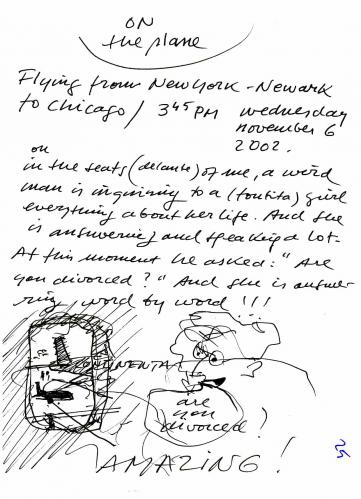 ON
the plane
Flying from New York - Newark
to Chicago / 3 45 PM wednesday
november 6
2002.
on
in the seats (delante) of me, a weird
man is inquiring to a (tontita) girl
everything about her life. And she
is answering and speaking a lot.
At this moment he asked: "Are
you divorced?" And she is answe-
ring, word by word !!!
CONTINENTAL
are
you
divorced?
AMAZING!